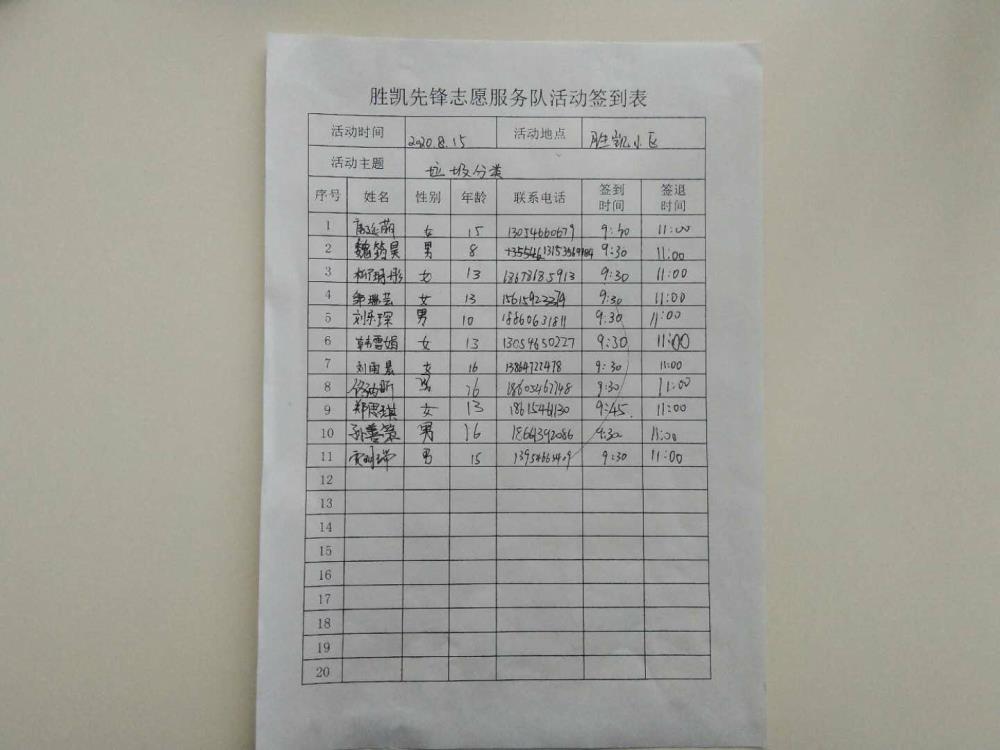 胜凯先锋志愿服务队活动签到表
活动时间 2020.8.15 活动地点 胜凯小区
活动主题 垃圾分类
序号 姓名 性别 年龄 联系电话 签到时间 签退时间
1 女 15 13054660679 9:30 11:00
2 魏筠昊 男 8 9:30 11:00
3 女 13 18678185913 9:30 11:00
4 女 13 9:30 11:00
5 刘乐琛 男 10 18860631811 9:30 11:00
6 韩雪娟 女 13 13054650227 9:30 11:00
7 刘雨晨 女 16 13864722478 9:30 11:00
8 男 16 18605467748 9:30 11:00
9 郑思琪 女 13 9:45 11:00
10 孙善策 男 16 9:30 11:00
11 男 15 9:30 11:00
12
13
14
15
16
17
18
19
20